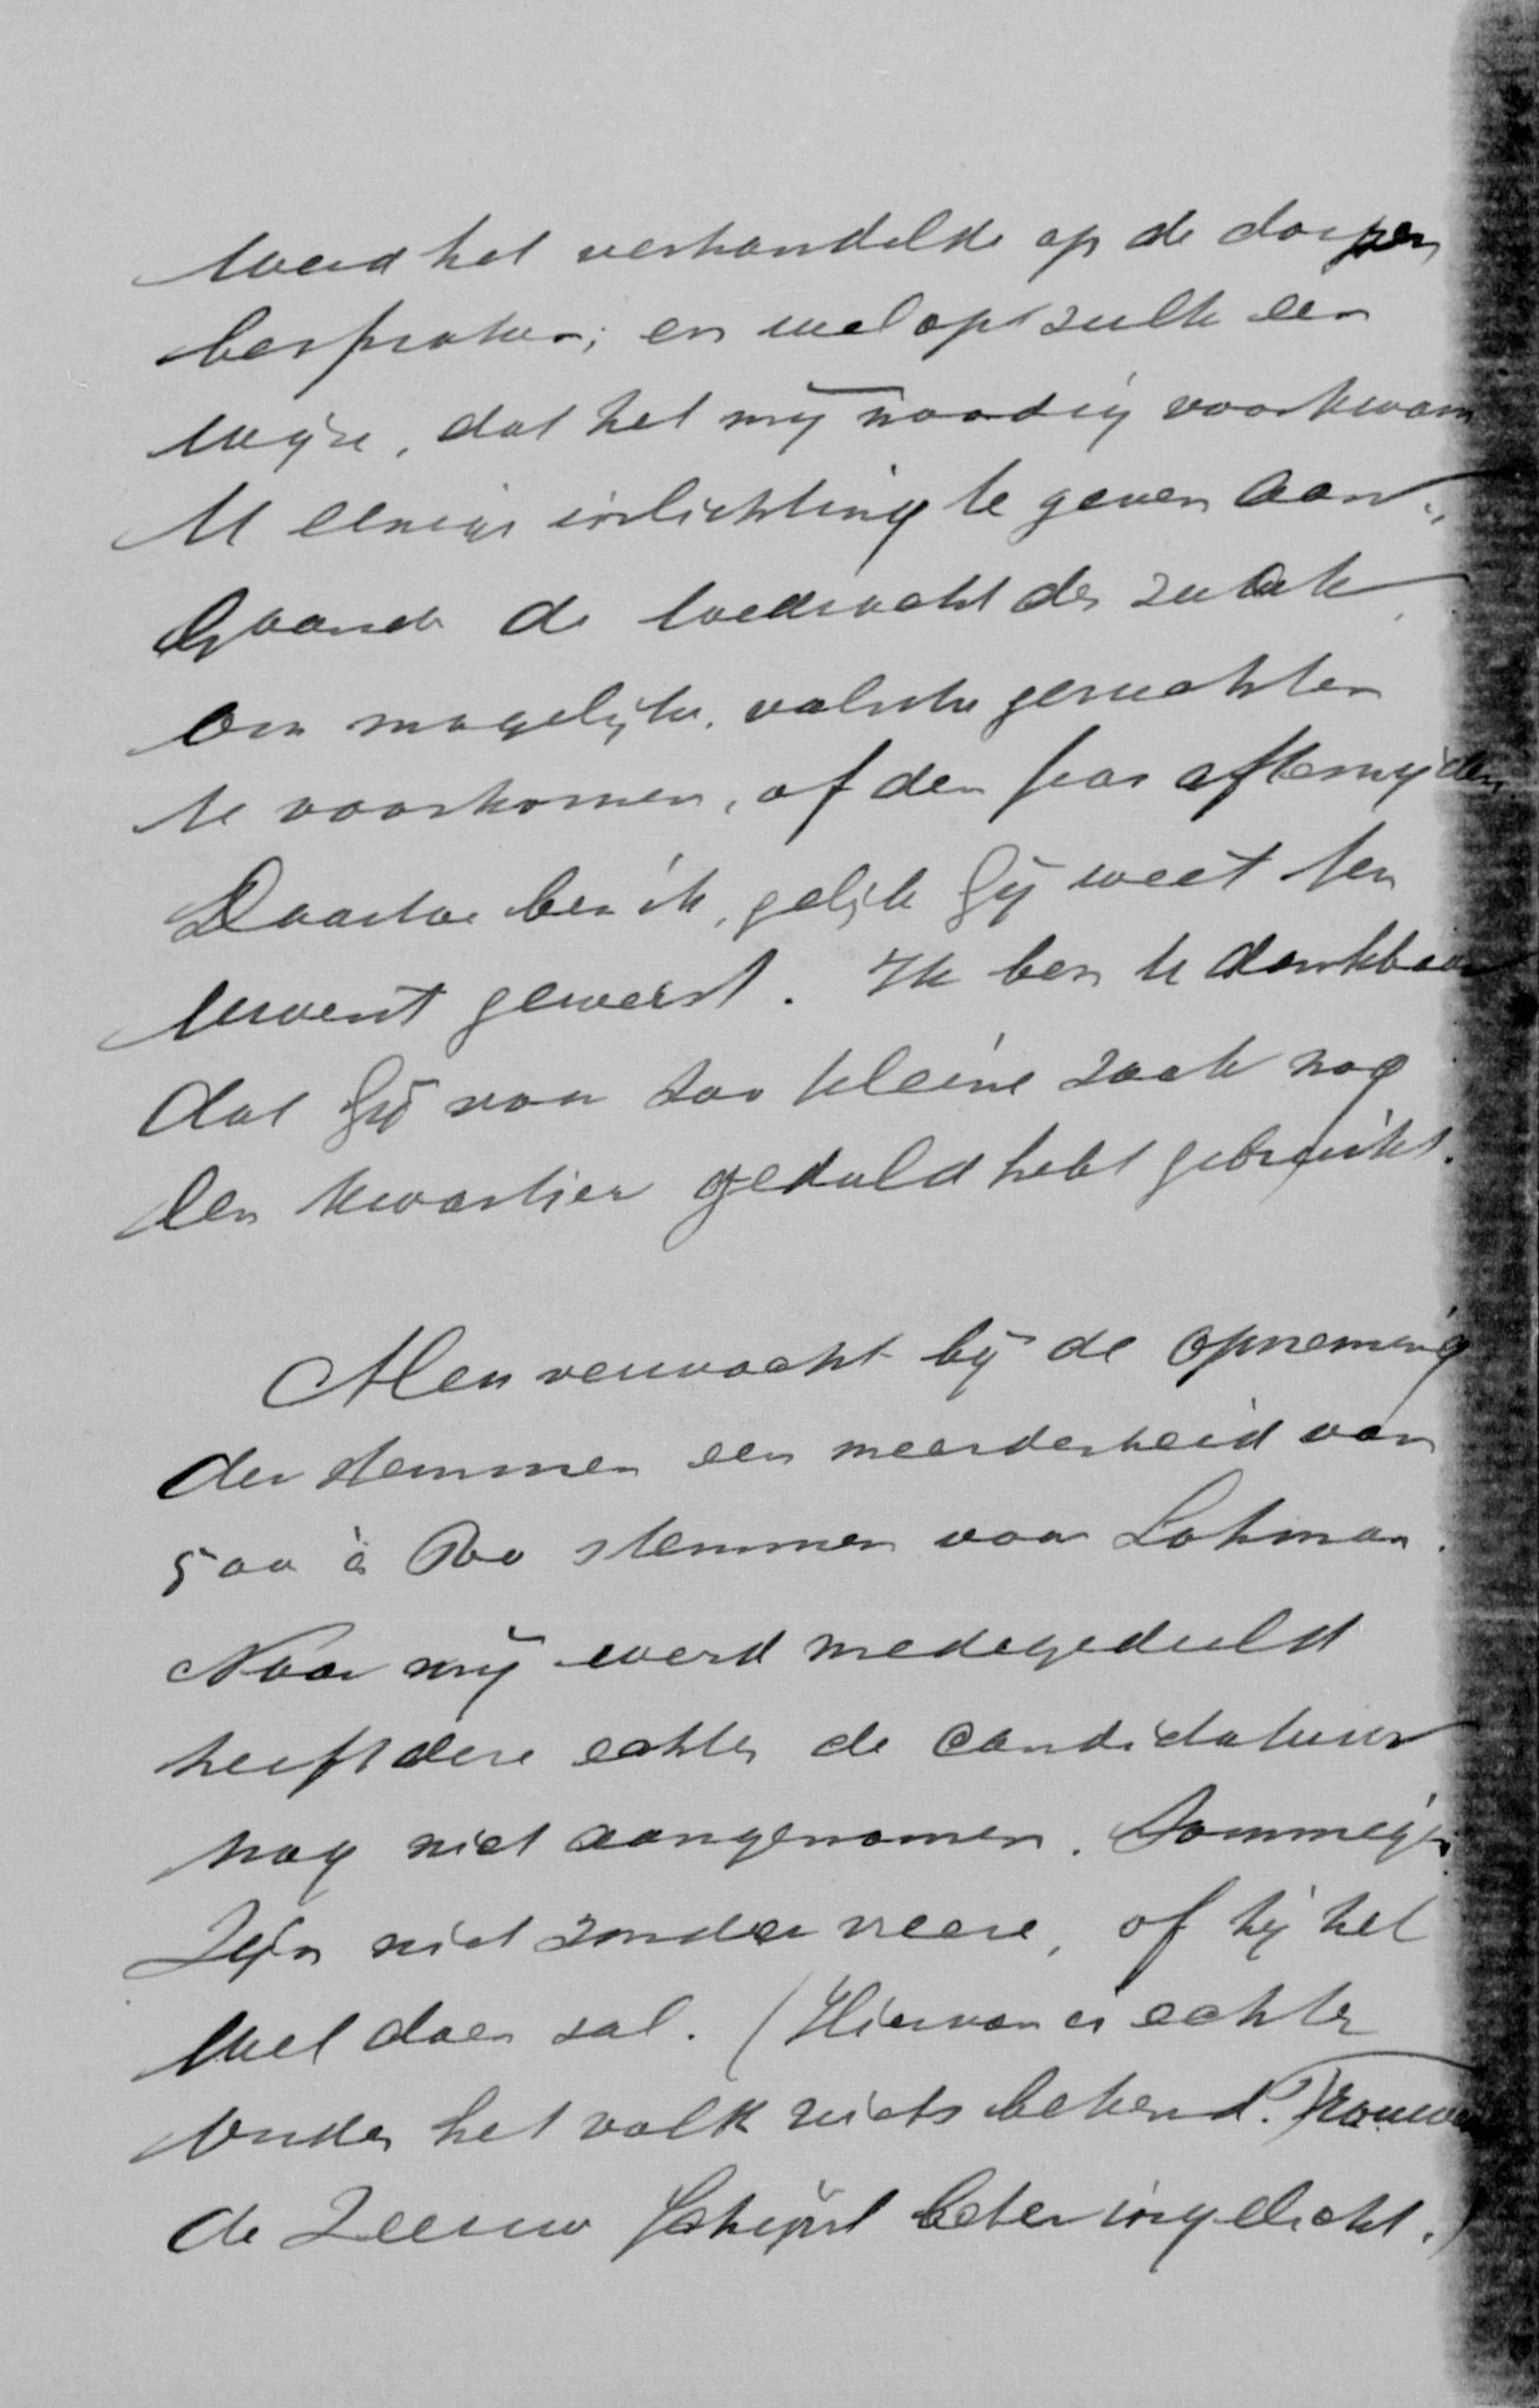 werd het verhandelde op de dorpen
besproken; en wel op zulk een
wijze, dat het mij noodig voorkwam
U eenige inlichting te geven aan-
gaande de toedracht der zaak
om mogelijke valsche geruchten
te voorkomen, of den pas aftesnijden
Daartoe ben ik, gelijk Gij weet ten
uwent geweest. Ik ben U dankbaar
dat Gij voor zoo kleine zaak nog
een kwartier geduld hebt gebruikt.
Men verwacht bij de opneming
der stemmen een meerderheid van
500 à stemmen voor Lohman.
Naar mij werd medegedeeld
heeft deze echter de candidatuur
nog niet aangenomen. Sommigen
zijn niet zonder vreeze, of hij het
wel doen zal. (Hiervan is echter
onder het volk niets bekend. Trouwens
de Zeeuw schijnt beter ingelicht.)